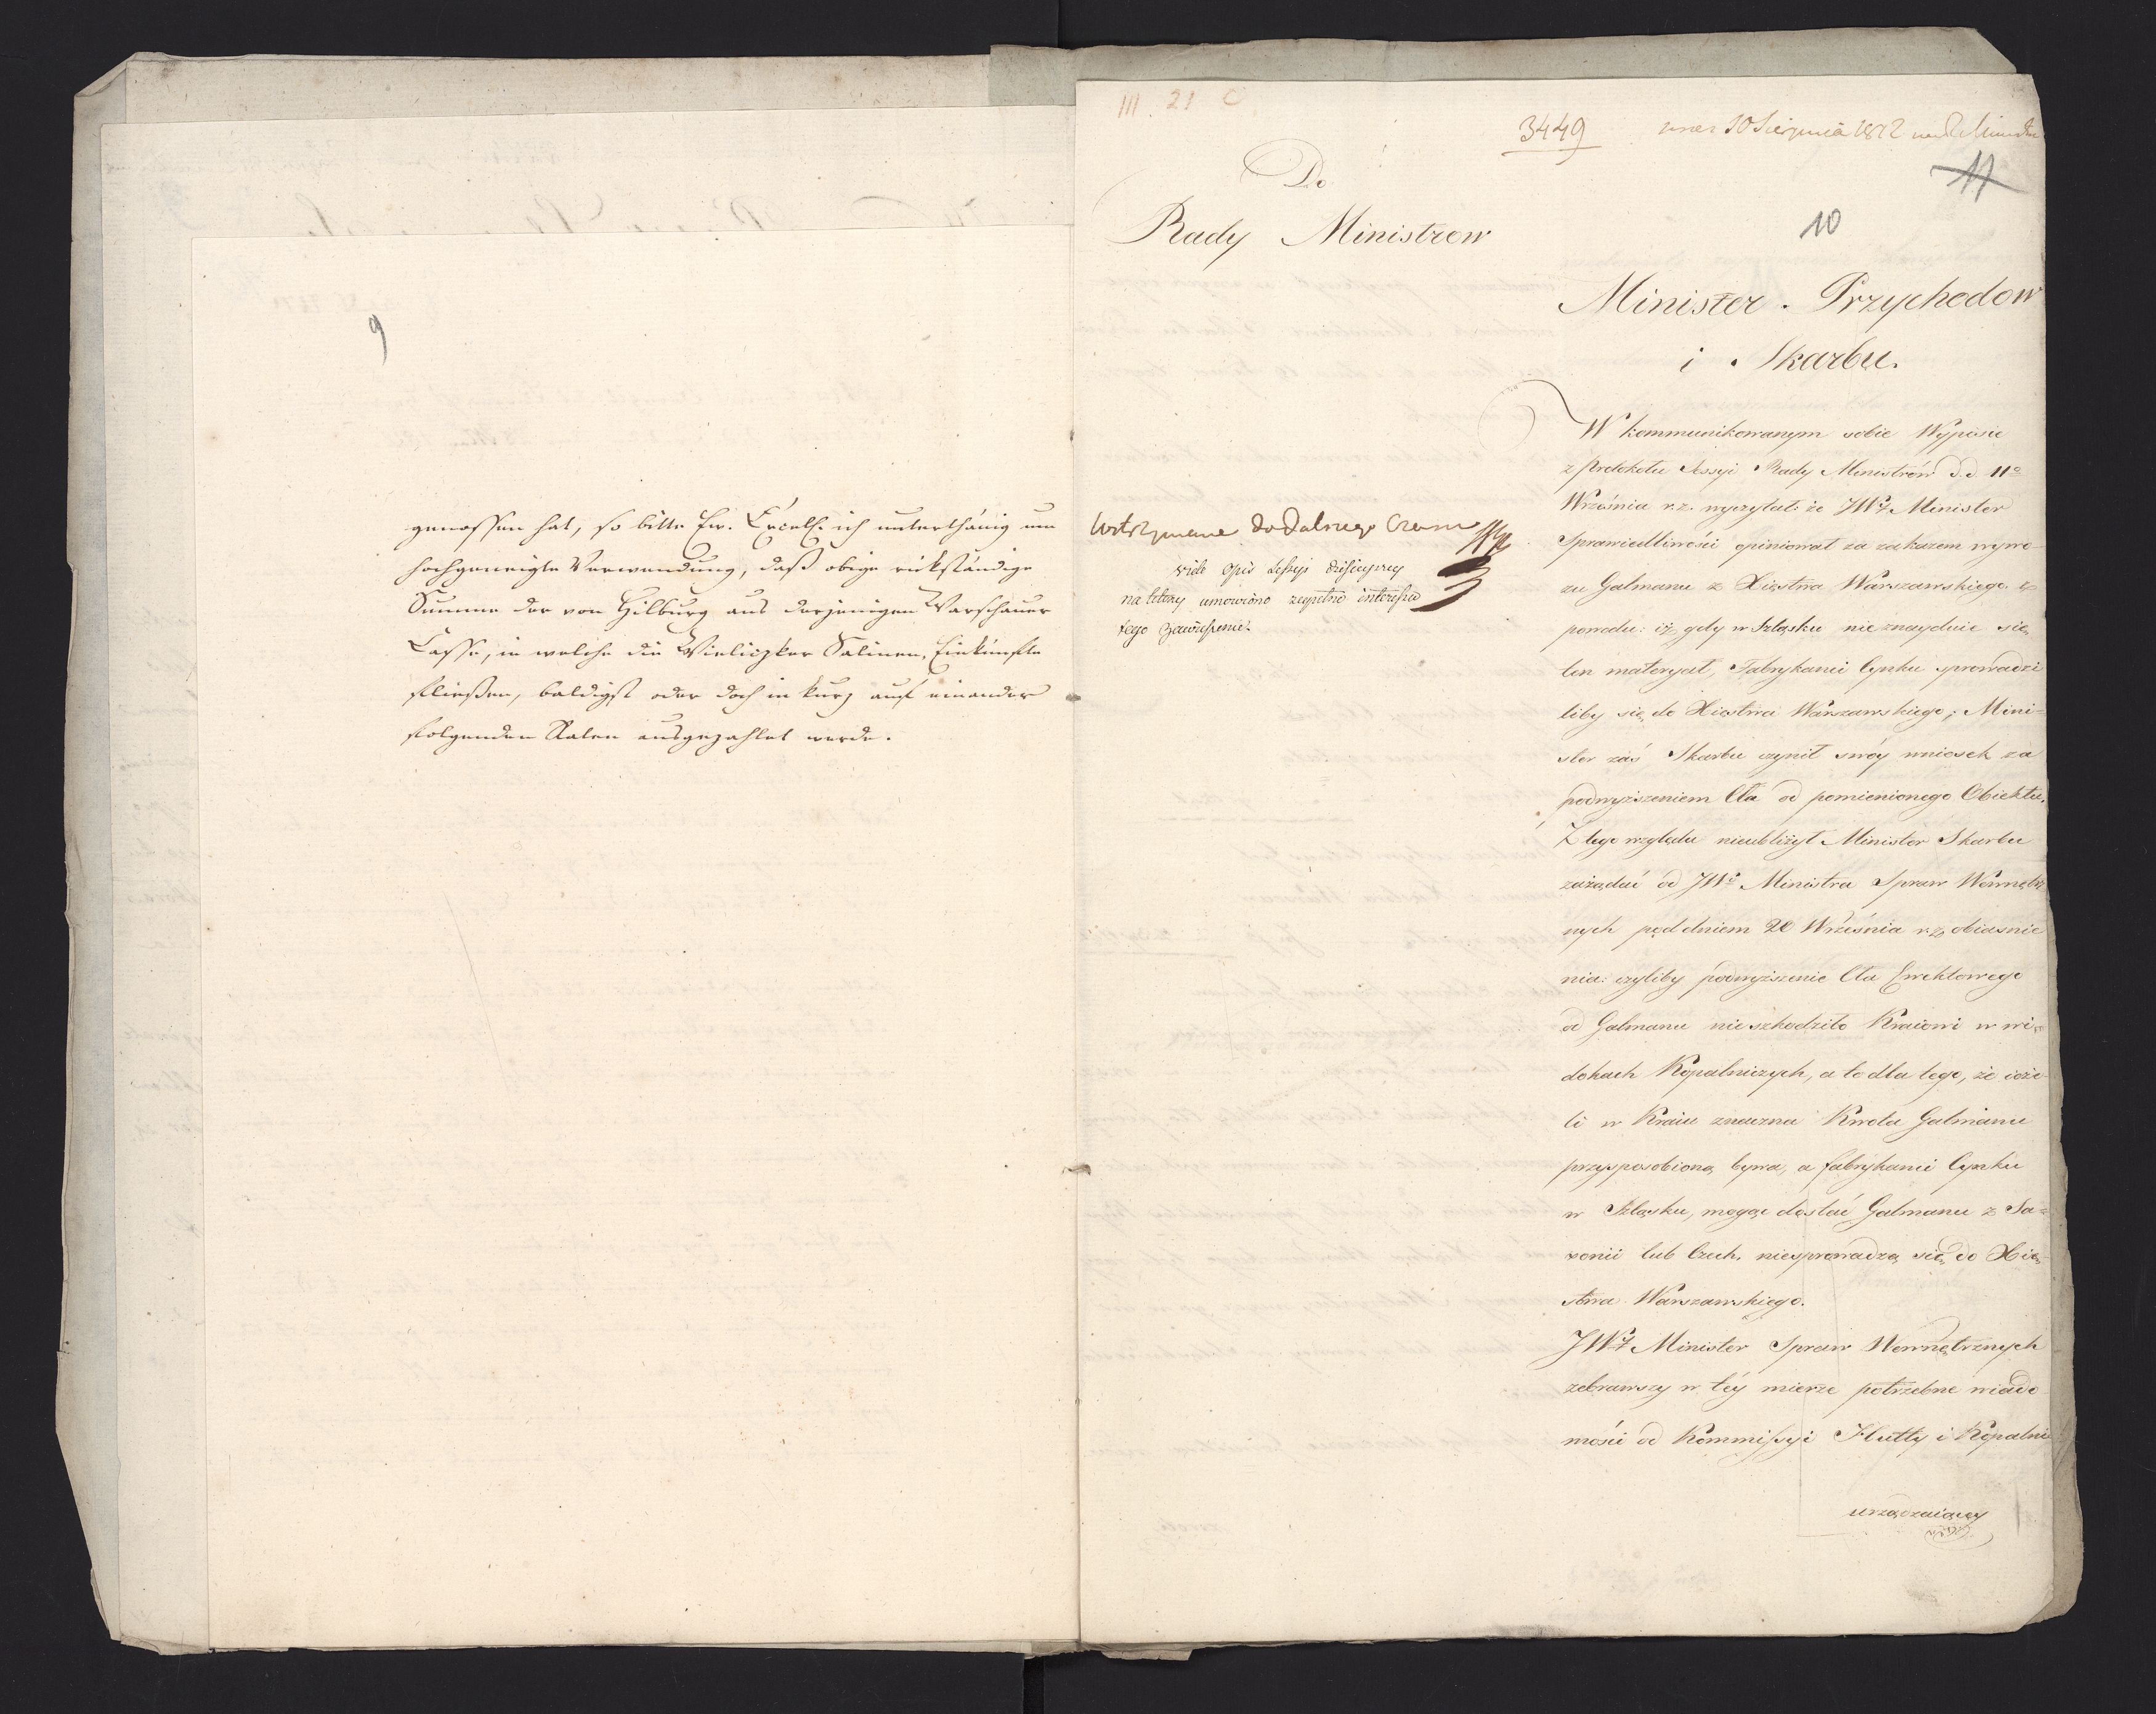 9
genossen hat, so bitte Ew. Excell. ich unterthänig um
hochgeneigte Verwendung, daß obige rückständige
Summe der von Hilburg aus derjenigen Warschauer
Casse, in welche die Wieliczker Salinen, Einkünfte
fließen, baldigst oder doch in kurz auf einander
folgenden Raten ausgezahlet werde.
III. 21 C
3449
10 Sierpnia 1812
11
10
Do
Rady Ministrow
Minister Przychodow
i Skarbu.
Wstrzymane do dalszego Czasu
vide opis Sessyi dzisieyszey
na ktorey umowiono zupełne interessu
tego zawieszenie.
W kommunikowanym sobie Wypisie
z Protokołu Sessyi Rady Ministrów d.d. 11º
Września r.z. wyczytał: że JWy Minister
Sprawiedliwości opiniował za zakazem wywo-
zu Galmanu z Xięstwa Warszawskiego z
powodu: iż gdy w Szląsku nie znayduie się
ten materyał, Fabrykanci Cynku sprowadzi
liby się do Xięstwa Warszawskiego; Mini-
ster zaś Skarbu czynił swóy wniosek za
podwyższeniem Cła od pomienionego Obiektu.
Z tego względu nieubliżył Minister Skarbu
zażądać od JWº Ministra Spraw Wewnętrz
nych pod dniem 20 Września r.z. obiasnie
nia: czyliby podwyższenie Cła Ewektowego
od Galmanu nie szkodziło Kraiowi w wi-
dokach Kopalniczych, a to dla tego, że ieże-
li w Kraiu znaczna Kwota Galmanu
przysposobioną bywa, a fabrykanci Cynku
w Szląsku, mogąc dostać Galmanu z Sa-
xonii lub Czech, niesprowadzą się do Xię-
stwa Warszawskiego.
JWy Minister Spraw Wewnętrznych
zebrawszy w téy mierze potrzebne wiado
mości od Kommissyi Hutty i Kopalnie
urządzaiącey